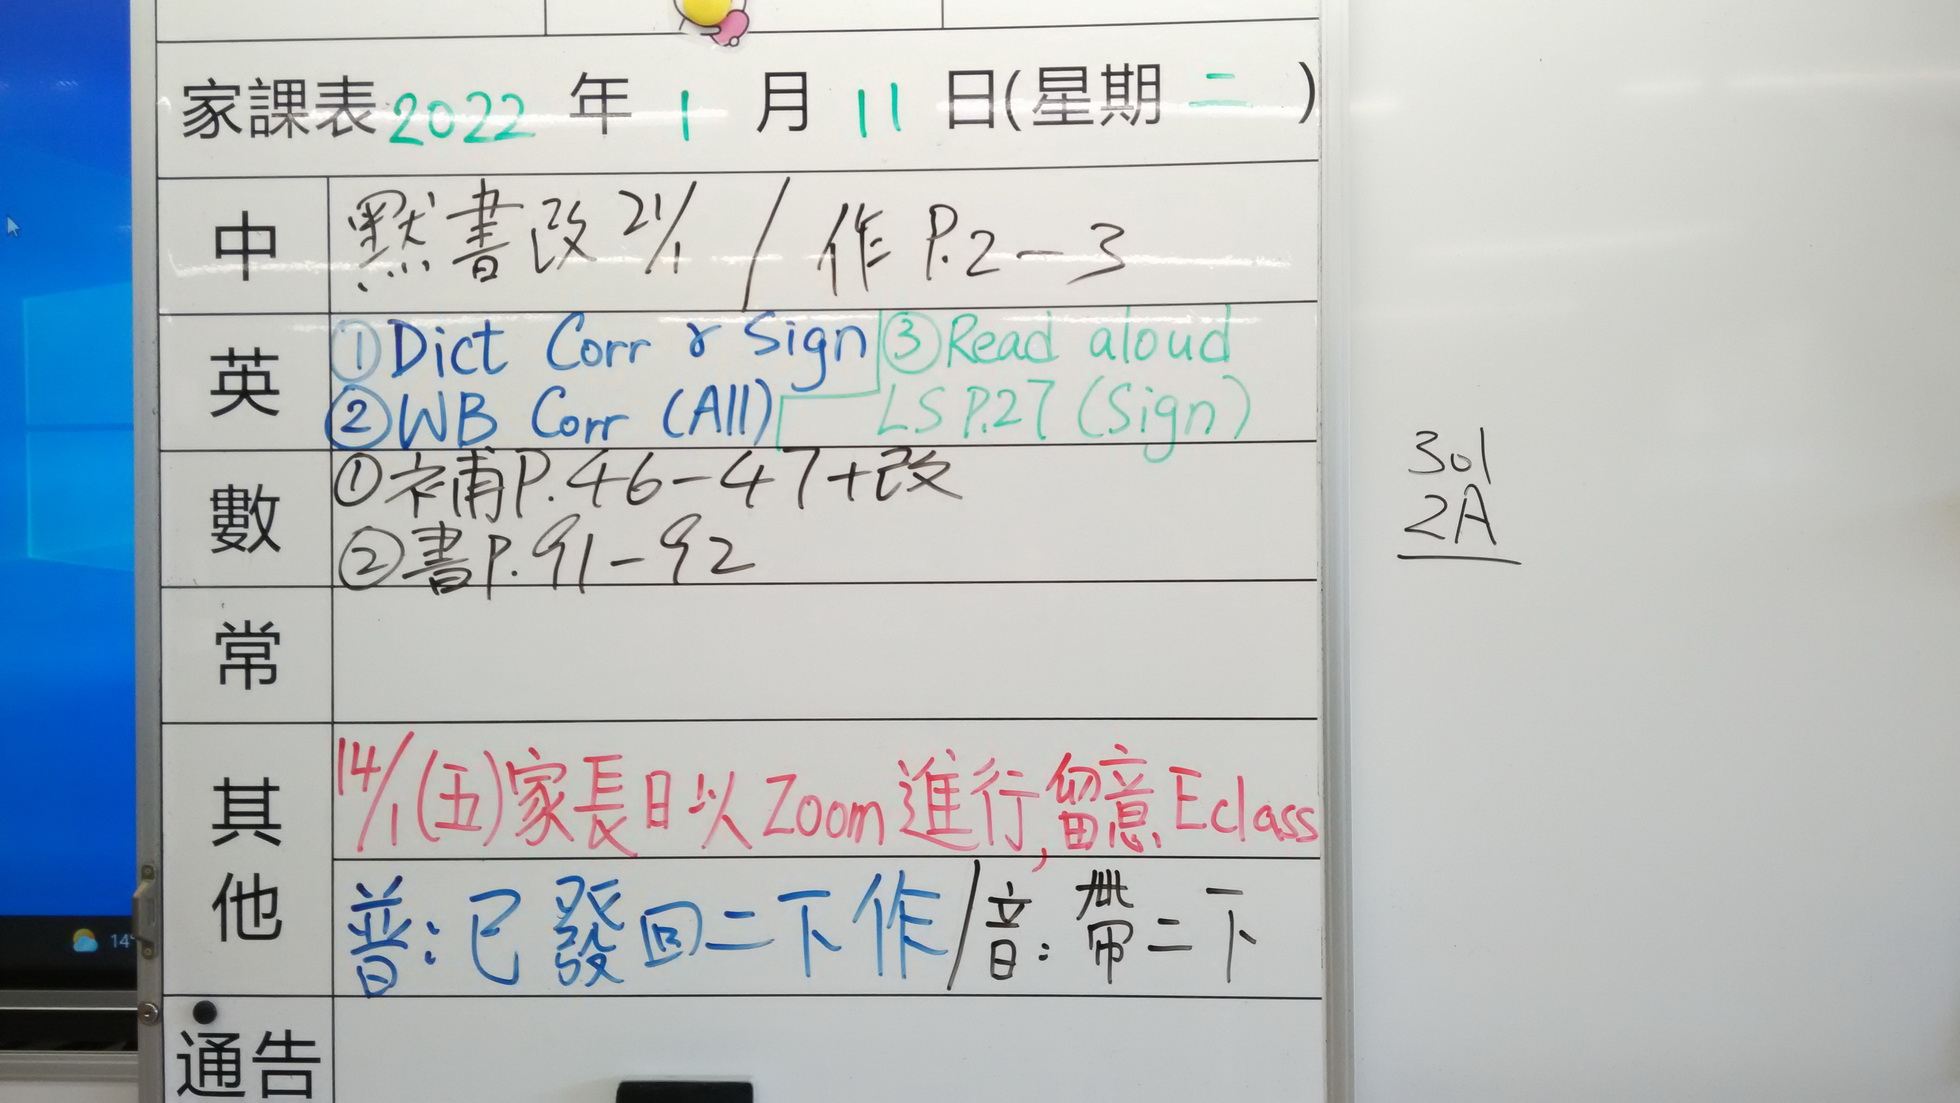 家課表 2022 年 1 月 11 日(星期 二 )
中
默書改 21/1 / 作 P.2-3
英
① Dict Corr & Sign
② WB Corr (All)
③ Read aloud
LS P.27 (Sign)
數
① 補 P.46-47+改
② 書 P.91-92
常
其他
14/1 (五) 家長日以 Zoom 進行, 留意 Eclass
普:已發回二下作/音:帶二下
通告
301
2A
14°